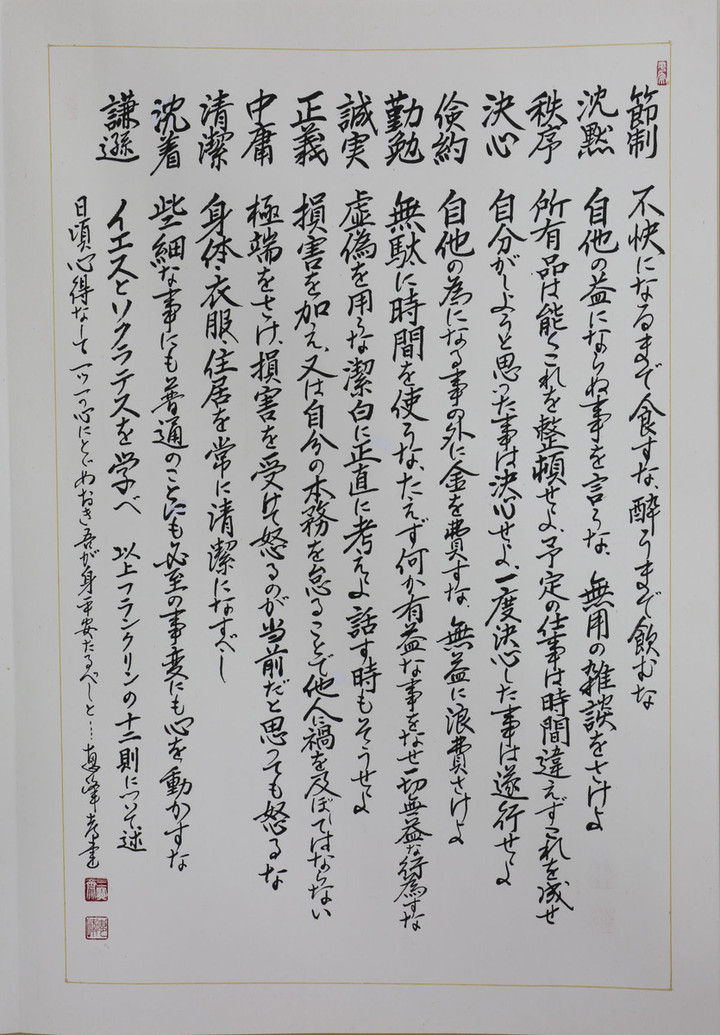 節制 不快になるまで食すな、酔うまで飲むな
沈黙 自他の益にならぬ事を言うな 無用の雑談をさけよ
秩序 所有品は能くこれを整頓せよ、予定の仕事は時間違えずこれを成せ
決心 自分がしようと思った事は決心せよ、一度決心した事は遂行せよ
倹約 自他の為になる事の外に金を費すな、無益に浪費さけよ
勤勉 無駄に時間を使うな、たえず何か有益な事をなせ一切無益な行為すな
誠実 虚偽を用うな 潔白に正直に考えよ 話す時もそうせよ
正義 損害を加え、又は自分の本務を怠ることで他人に禍を及ぼしてはならない
中庸 極端をさけ、損害を受けて怒るのが当前だと思っても怒るな
清潔 身体、衣服住居を常に清潔になすべし
沈着 些細な事にも普通のことにも必至の事変にも心を動かすな
謙遜 イエスとソクラテスを学べ 以上フランクリンの十二則について述
日頃心得なして一つ一つ心にとどめおき吾が身平安たるべしと…